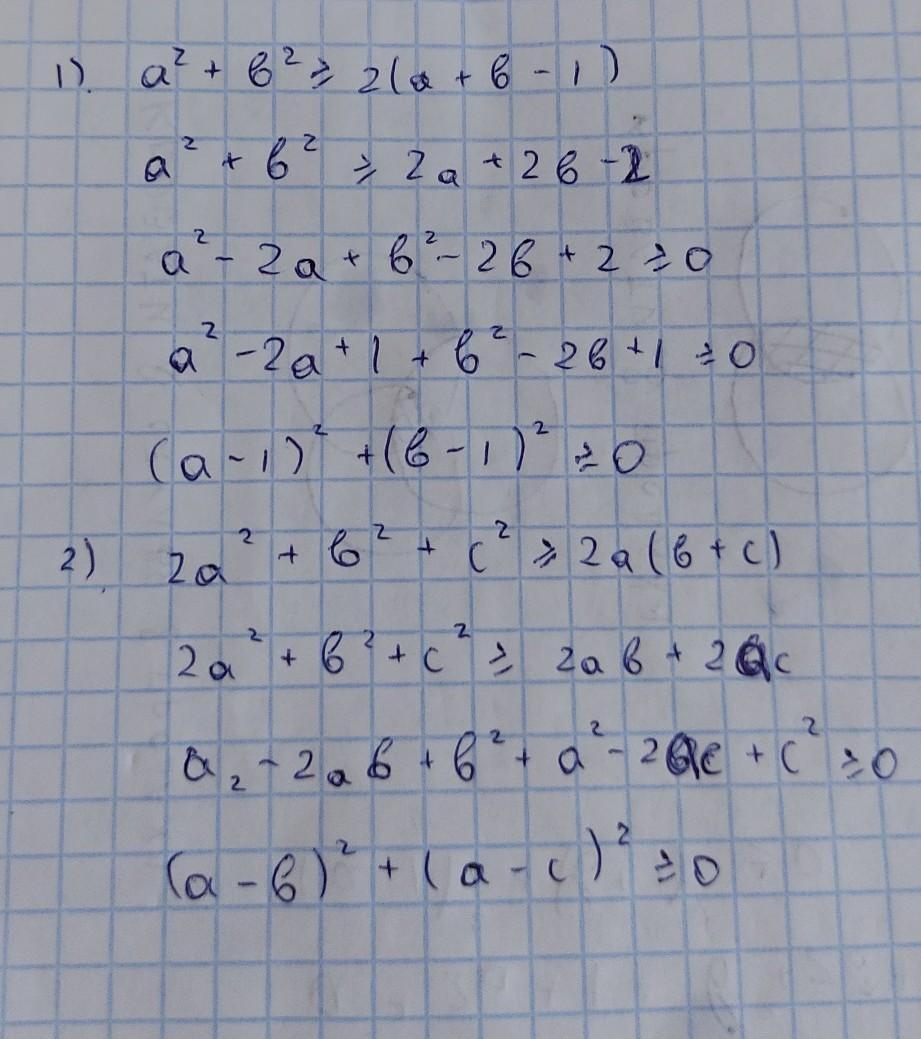 1). a² + в² ≥ 2(a + в - 1)
a² + в² ≥ 2a + 2в - 2
a² - 2a + в² - 2в + 2 ≥ 0
a² - 2a + 1 + в² - 2в + 1 ≥ 0
(a - 1)² + (в - 1)² ≥ 0
2). 2a² + в² + c² ≥ 2a(в + c)
2a² + в² + c² ≥ 2aв + 2ac
a₂ - 2aв + в² + a² - 2ac + c² ≥ 0
(a - в)² + (a - c)² ≥ 0